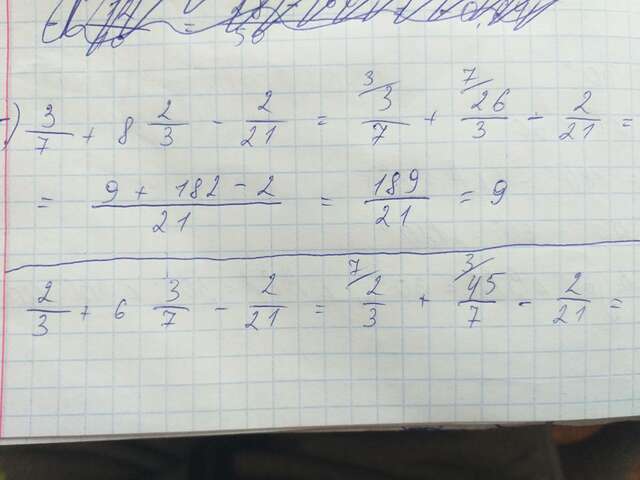 3/7 + 8 2/3 - 2/21 = 3/ 3/7 + 7/ 26/3 - 2/21 =
= (9 + 182 - 2)/21 = 189/21 = 9
2/3 + 6 3/7 - 2/21 = 7/ 2/3 + 3/ 45/7 - 2/21 =